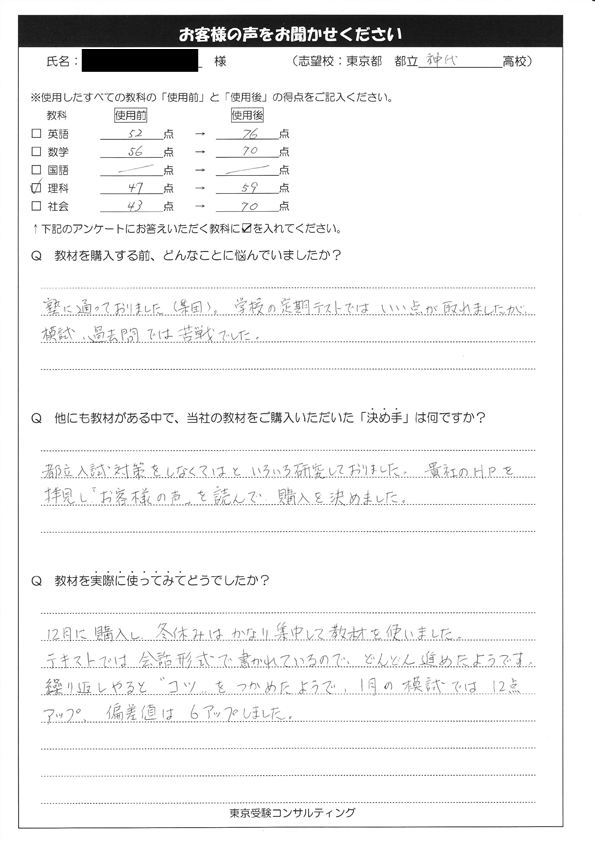 お客様の声をお聞かせください
氏名： 様 （志望校：東京都 都立 神代 高校）
※使用したすべての教科の「使用前」と「使用後」の得点をご記入ください。
教科 使用前 使用後
□ 英語 52 点 → 76 点
□ 数学 56 点 → 70 点
□ 国語 ／ 点 → ／ 点
☑ 理科 47 点 → 59 点
□ 社会 43 点 → 70 点
↑下記のアンケートにお答えいただく教科に☑を入れてください。
Q 教材を購入する前、どんなことに悩んでいましたか？
塾に通っておりました（集団）。学校の定期テストでは いい点が取れましたが、
模試、過去問では苦戦でした。
Q 他にも教材がある中で、当社の教材をご購入いただいた「決め手」は何ですか？
都立入試対策をしなくてはと いろいろ研究しておりました。 貴社のHPを
拝見し「お客様の声」を読んで 購入を決めました。
Q 教材を実際に使ってみてどうでしたか？
12月に購入し 冬休みは かなり集中して教材を使いました。
テキストでは 会話形式で書かれているので、どんどん進めたようです。
繰り返しやると"コツ"をつかめたようで、1月の模試では 12点
アップ、 偏差値は 6アップしました。
東京受験コンサルティング